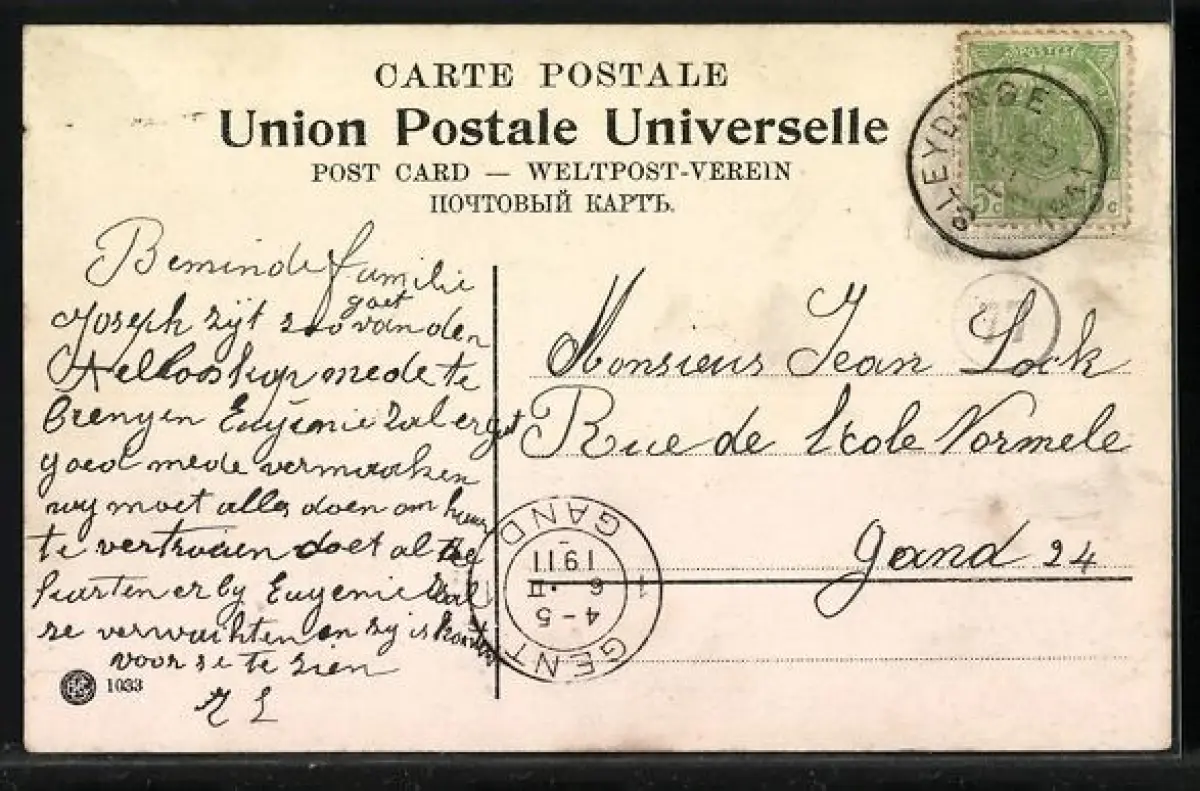 CARTE POSTALE
Union Postale Universelle
POST CARD — WELTPOST-VEREIN
ПОЧТОВЫЙ КАРТЪ.
POSTES
5c 5c
SLEYDINGE
1911
Beminde familie
goet
Joseph zijt zoo van den
mede te
brengen Eugenie zal
goed mede vermaaken
wy moet alles doen om
te doet al
kaarten er by Eugenie zal
ze verwachten en zy is
voor ze te zien
Monsieur Jean Lock
Rue de Ecole Normele
gand 24
GENT
4-5
6 II
1911
GAND
1 1
1033